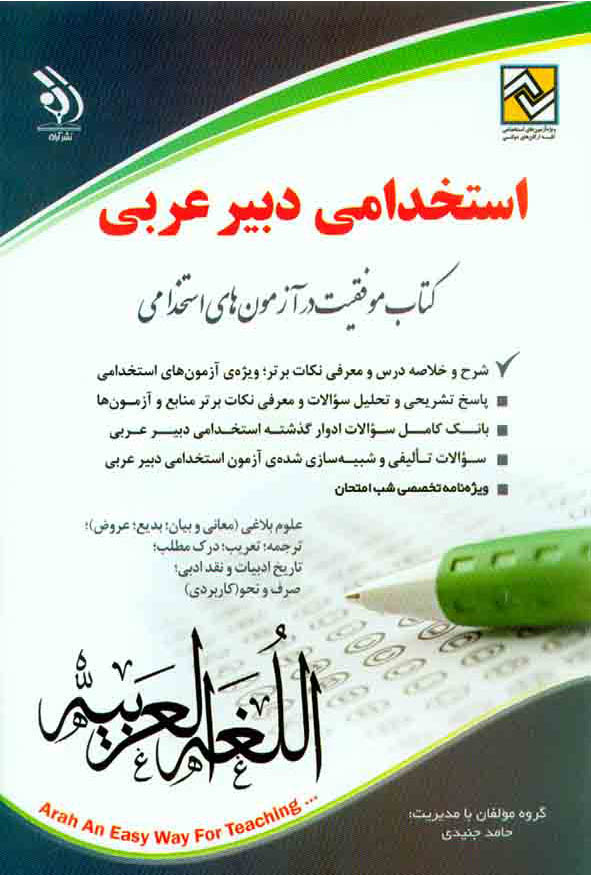 نشر آراه
ویژه آزمون‌های استخدامی
کلیه ارگان‌های دولتی
استخدامی دبیر عربی
کتاب موفقیت در آزمون های استخدامی
شرح و خلاصه درس و معرفی نکات برتر؛ ویژه‌ی آزمون‌های استخدامی
پاسخ تشریحی و تحلیل سؤالات و معرفی نکات برتر منابع و آزمون‌ها
بانک کامل سؤالات ادوار گذشته استخدامی دبیر عربی
سؤالات تألیفی و شبیه‌سازی شده‌ی آزمون استخدامی دبیر عربی
ویژه‌نامه تخصصی شب امتحان
علوم بلاغی (معانی و بیان؛ بدیع؛ عروض)؛
ترجمه؛ تعریب؛ درک مطلب؛
تاریخ ادبیات و نقد ادبی؛
صرف و نحو(کاربردی)
اللُغه العربیه
Arah An Easy Way For Teaching ...
گروه مؤلفان با مدیریت:
حامد جنیدی